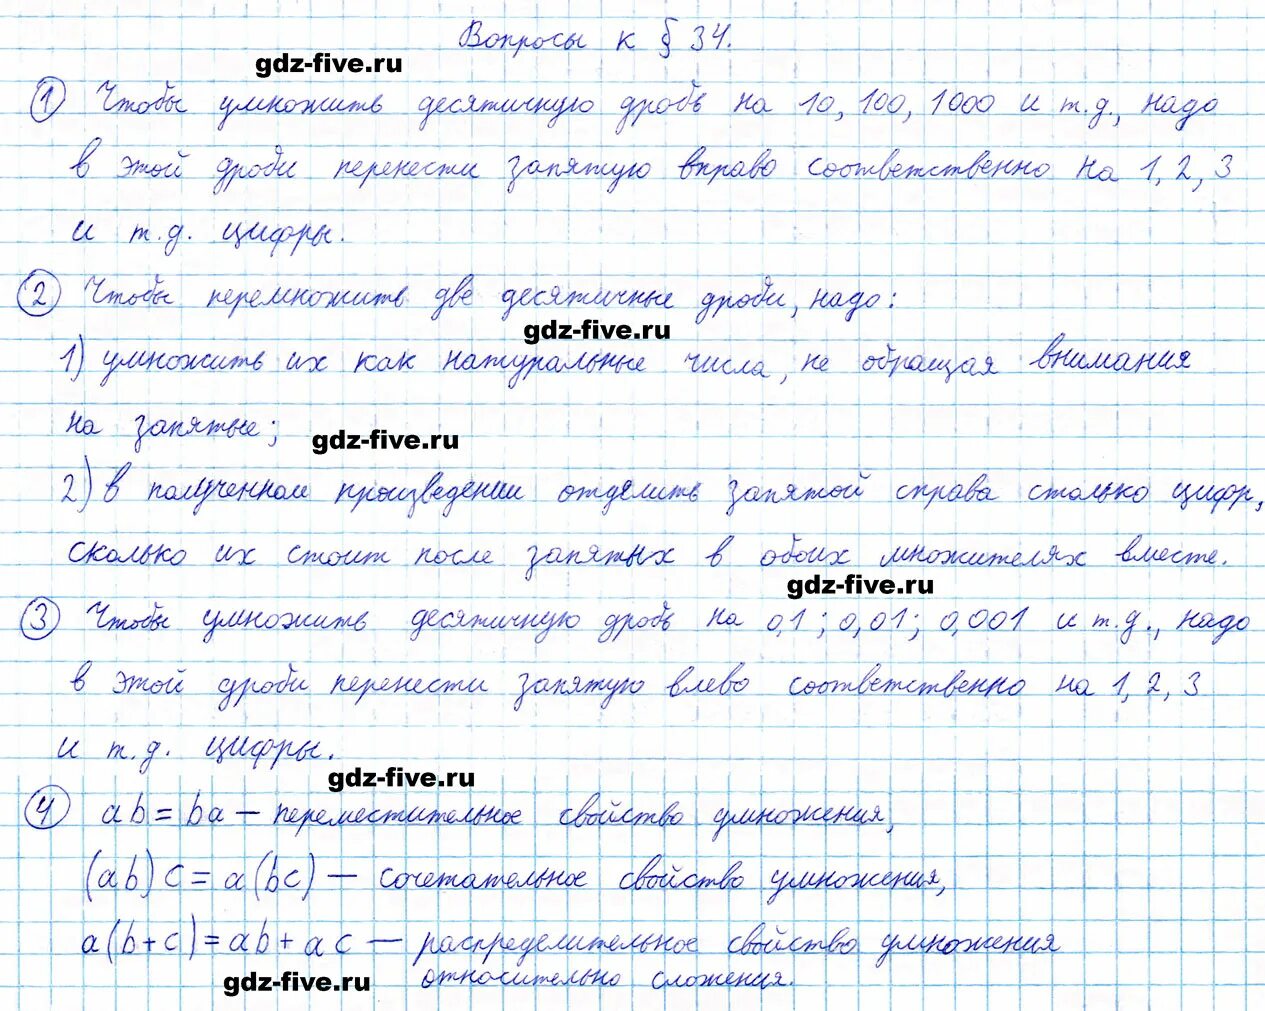 Вопросы к § 34.
gdz-five.ru
① Чтобы умножить десятичную дробь на 10, 100, 1000 и т.д., надо
в этой дроби перенести запятую вправо соответственно на 1, 2, 3
и т.д. цифры.
② Чтобы перемножить две десятичные дроби, надо:
gdz-five.ru
1) умножить их как натуральные числа, не обращая внимания
на запятые;
gdz-five.ru
2) в полученном произведении отделить запятой справа столько цифр,
сколько их стоит после запятых в обоих множителях вместе.
gdz-five.ru
③ Чтобы умножить десятичную дробь на 0,1; 0,01; 0,001 и т.д., надо
в этой дроби перенести запятую влево соответственно на 1, 2, 3
и т.д. цифры.
gdz-five.ru
④ ab = ba — переместительное свойство умножения,
(ab)c = a(bc) — сочетательное свойство умножения,
a(b+c) = ab + ac — распределительное свойство умножения
относительно сложения.
gdz-five.ru